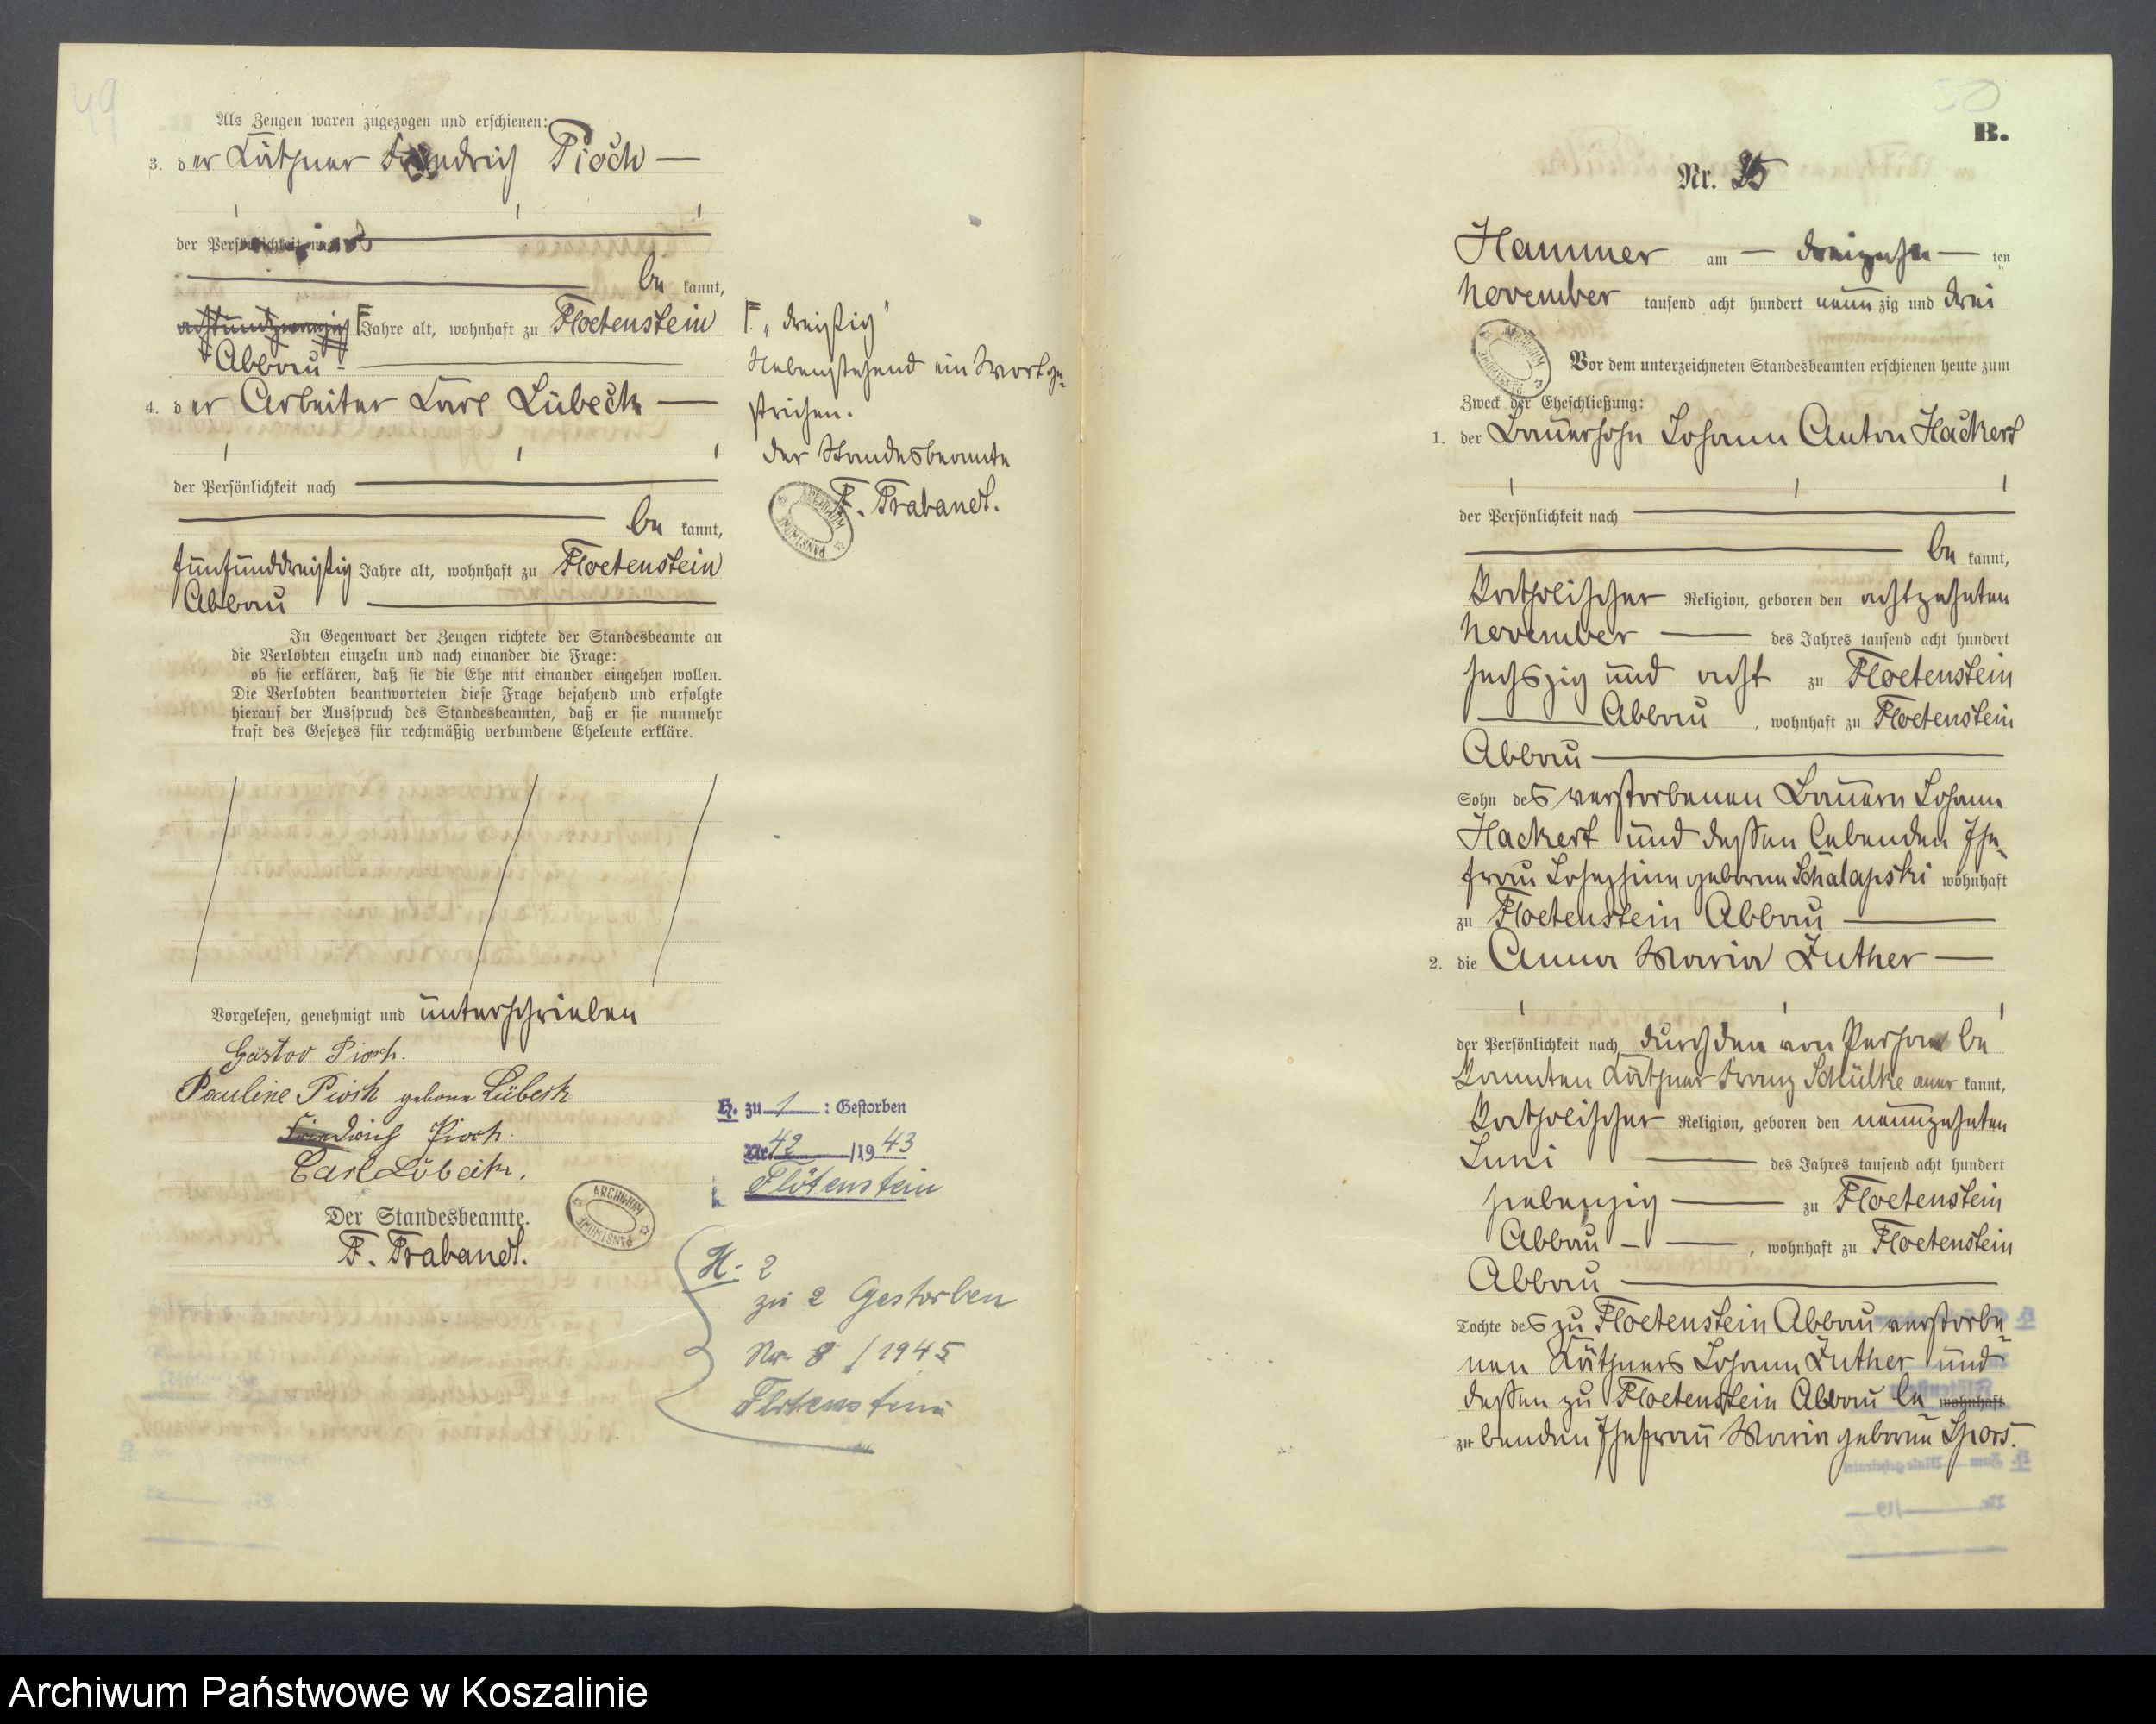 49
Als Zeugen waren zugezogen und erschienen:
3. der Käthner Friedrich Pioch —
der Persönlichkeit nach
be kannt,
achtundzwanzig F Jahre alt, wohnhaft zu Floetenstein
Abbau
4. der Arbeiter Karl Lübeck —
der Persönlichkeit nach
be kannt,
fünfunddreißig Jahre alt, wohnhaft zu Floetenstein
Abbau
In Gegenwart der Zeugen richtete der Standesbeamte an
die Verlobten einzeln und nach einander die Frage:
ob sie erklären, daß sie die Ehe mit einander eingehen wollen.
Die Verlobten beantworteten diese Frage bejahend und erfolgte
hierauf der Ausspruch des Standesbeamten, daß er sie nunmehr
kraft des Gesetzes für rechtmäßig verbundene Eheleute erkläre.
Vorgelesen, genehmigt und unterschrieben
Gustav Pioch.
Pauline Pioch geborne Lübeck
Friedrich Pioch.
Carl Lübeck.
Der Standesbeamte.
F. Trabandt.
F. „dreißig"
Nebenstehend ein Wort ge-
strichen.
Der Standesbeamte
F. Trabandt.
ARCHIWUM PAŃSTWOWE
H. zu 1 : Gestorben
Nr. 42 /19 43
Flötenstein
ARCHIWUM PAŃSTWOWE
H. 2
zu 2 Gestorben
Nr. 8 / 1945
Flötenstein
B.
Nr. 25
Hammer am — dreizehn — ten
November tausend acht hundert neun zig und drei
ARCHIWUM PAŃSTWOWE
Vor dem unterzeichneten Standesbeamten erschienen heute zum
Zweck der Eheschließung:
1. der Bauersohn Johann Anton Hackert
der Persönlichkeit nach
be kannt,
katholischer Religion, geboren den achtzehnten
November — des Jahres tausend acht hundert
sechszig und acht zu Floetenstein
Abbau , wohnhaft zu Floetenstein
Abbau
Sohn des verstorbenen Bauern Johann
Hackert und dessen lebenden Ehe-
frau Josephine geborne Schalapski wohnhaft
zu Floetenstein Abbau
2. die Anna Maria Luther —
der Persönlichkeit nach durch den von Person be
kannten Käthner Franz Schülke aner kannt,
katholischer Religion, geboren den neunzehnten
Juni — des Jahres tausend acht hundert
siebenzig — zu Floetenstein
Abbau — , wohnhaft zu Floetenstein
Abbau
Tochte des zu Floetenstein Abbau verstorbe-
nen Käthners Johann Luther und
dessen zu Floetenstein Abbau le- wohnhaft
zu benden Ehefrau Maria geborne Spors.
Archiwum Państwowe w Koszalinie